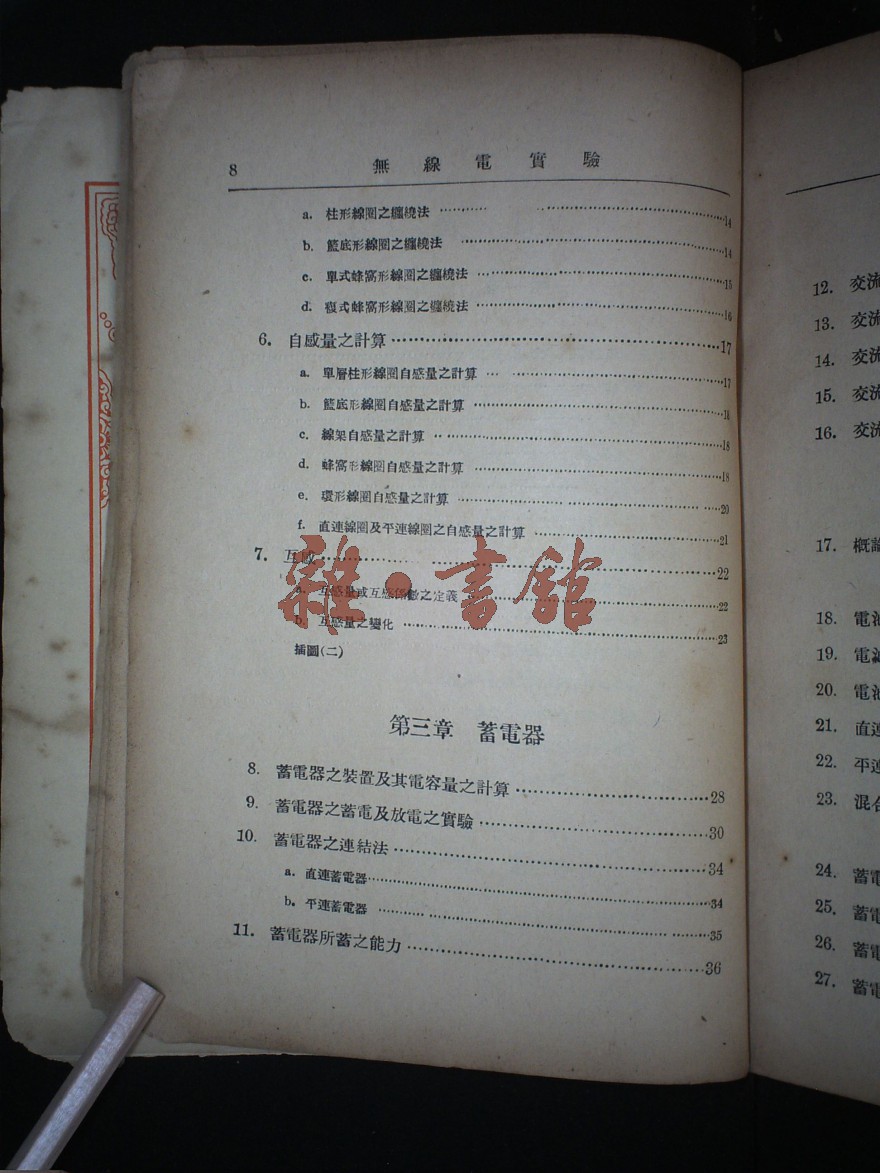 8 無線電實驗
a. 柱形線圈之纏繞法 14
b. 籃底形線圈之纏繞法 14
c. 單式蜂窩形線圈之纏繞法 15
d. 複式蜂窩形線圈之纏繞法 16
6. 自感量之計算 17
a. 單層柱形線圈自感量之計算 17
b. 籃底形線圈自感量之計算 18
c. 線架自感量之計算 18
d. 蜂窩形線圈自感量之計算 18
e. 環形線圈自感量之計算 20
f. 直連線圈及平連線圈之自感量之計算 21
7. 互感 22
a. 互感量或互感係數之定義 22
b. 互感量之變化 23
插圖(二)
雜·書館
第三章 蓄電器
8. 蓄電器之裝置及其電容量之計算 28
9. 蓄電器之蓄電及放電之實驗 30
10. 蓄電器之連結法 34
a. 直連蓄電器 34
b. 平連蓄電器 35
11. 蓄電器所蓄之能力 36
12. 交流
13. 交流
14. 交流
15. 交流
16. 交流
17. 概論
18. 電池
19. 電
20. 電池
21. 直連
22. 平連
23. 混合
24. 蓄電
25. 蓄電
26. 蓄電
27. 蓄電